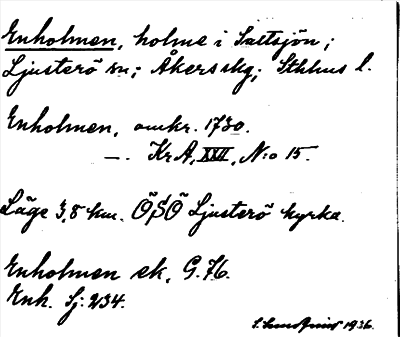 Enholmen, holme i Saltsjön;
Ljusterö sn; Åkers skg; Sthlms l.
Enholmen, omkr. 1730.
—. Kr A, XXII, N:o 15.
Läge 3,8 km. ÖSÖ Ljusterö kyrka.
Enholmen ek. G. 76.
Enh. Sj: 234.
1936.